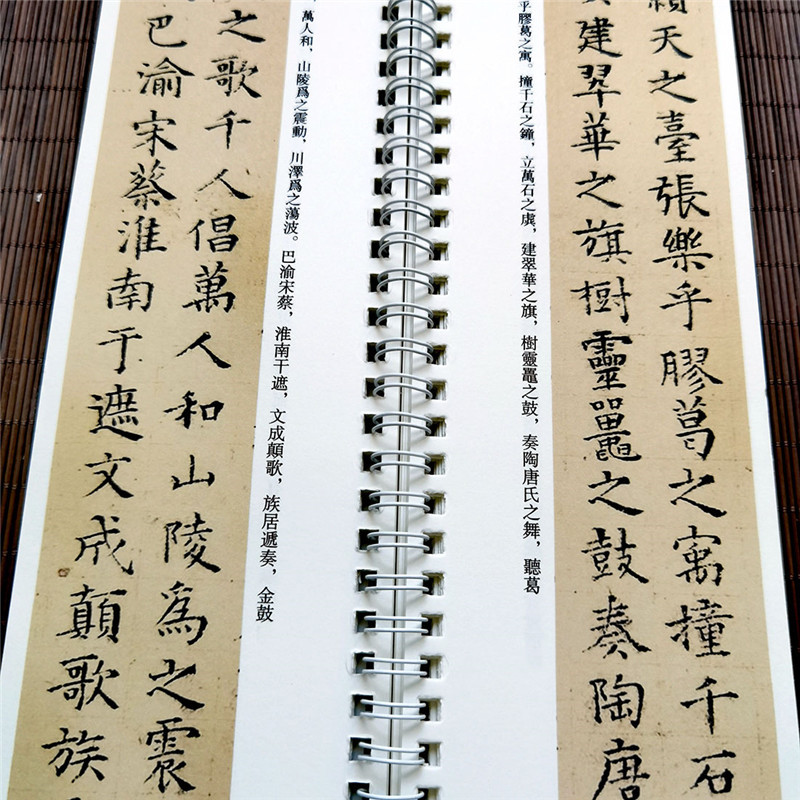 天之臺張樂乎膠葛之寓撞千石
建翠華之旗樹靈鼉之鼓奏陶唐
乎膠葛之寓。撞千石之鐘，立萬石之虡，建翠華之旗，樹靈鼉之鼓，奏陶唐氏之舞，聽葛
萬人和，山陵爲之震動，川澤爲之蕩波。巴渝宋蔡，淮南干遮，文成顛歌，族居遞奏，金鼓
之歌千人倡萬人和山陵爲之震
巴渝宋蔡淮南于遮文成顛歌族